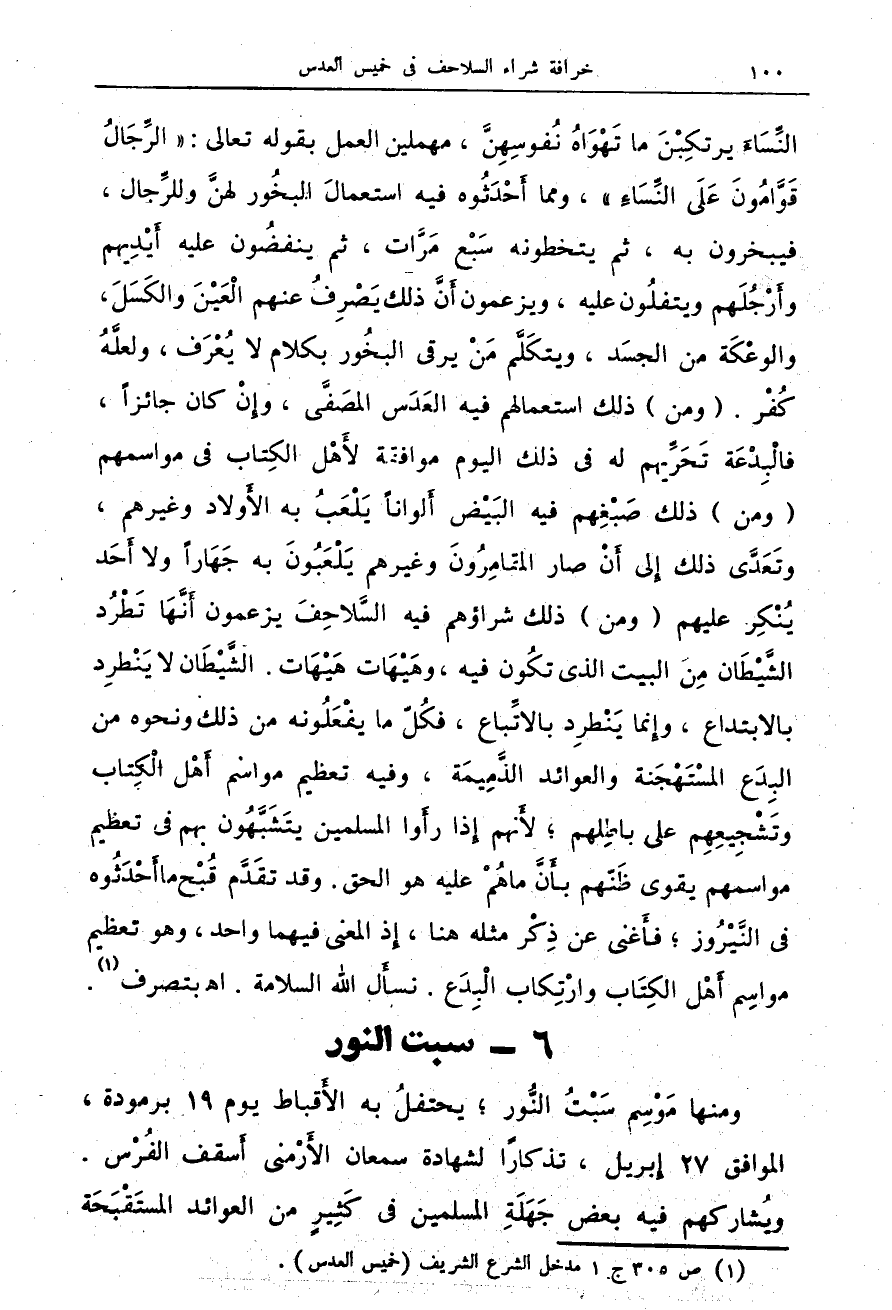 ١٠٠ خرافة شراء السلاحف فى خميس العدس
النِّسَاءَ يرتكِبْنَ ما تَهْوَاهُ نُفوسِهِنَّ ، مهملين العمل بقوله تعالى : « الرِّجَالُ
قَوَّامُونَ عَلَى النِّسَاءِ » ، ومما أَحْدَثُوه فيه استعمالَ البخُور لهنَّ وللرِّجال ،
فيبخرون به ، ثم يتخطونه سَبْع مَرَّات ، ثم ينفضُون عليه أَيْدِيهم
وأَرْجُلَهم ويتفلُون عليه ، ويزعمون أَنَّ ذلك يَصْرِفُ عنهم الْعَيْنَ والكَسَلَ،
والوعْكَة من الجسَد ، ويتكَلَّم مَنْ يرقى البخُور بكلام لا يُعْرَف ، ولعلَّهُ
كُفْر . ( ومن ) ذلك استعمالهم فيه العَدَس المصَفَّى ، وإنْ كان جائزاً ،
فالْبِدْعَة تَحَرِّيهم له فى ذلك اليوم موافقة لأَهْل الكِتاب فى مواسمهم
( ومن ) ذلك صَبْغِهم فيه البَيْض أَلواناً يَلْعَبُ به الأَولاد وغيرهم ،
وتَعَدَّى ذلك إلى أَنْ صار المقامِرُونَ وغيرهم يَلْعَبُونَ به جَهَاراً ولا أَحَد
يُنْكِر عليهم ( ومن ) ذلك شراؤهم فيه السَّلاحِفَ يزعمون أَنَّهَا تَطْرُد
الشَّيْطَان مِنَ البيت الذى تكُون فيه ، وهَيْهَات هَيْهَات . الشَّيْطَان لا يَنْطرِد
بالابتداع ، وإنما يَنْطرِد بالاتِّباع ، فكُلّ ما يفْعَلُونه من ذلك ونحوه من
البِدَع المسْتَهْجَنة والعوائد الذَّمِيمَة ، وفيه تعظيم مواسْم أَهْل الْكِتاب
وتَشْجِيعِهم على باطِلهم ؛ لأَنهم إذا رأَوا المسلمين يتَشَبَّهُون بهم فى تعظيم
مواسمهم يقوى ظَنّهم بأَنَّ ماهُمْ عليه هو الحق . وقد تقَدَّم قُبْح ما أَحْدَثُوه
فى النَّيْرُوز ؛ فأَغنى عن ذِكْر مثله هنا ، إذ المعنى فيهما واحد ، وهو تعظيم
مواسِم أَهْل الكِتَاب وارْتِكاب الْبِدَع . نسأَل الله السلامة . اهـ بتصرف (١) .
٦ – سبت النور
ومنها مَوْسِم سَبْتُ النُّور ؛ يحتفلُ به الأَقباط يوم ١٩ برمودة ،
الموافق ٢٧ إبريل ، تذكارًا لشهادة سمعان الأَرْمنى أَسقف الفُرْس .
ويُشاركهم فيه بعض جَهَلَةِ المسلمين فى كَثِيرٍ من العوائد المستَقْبَحَة
(١) ص ٣٠٥ ج ١ مدخل الشرع الشريف (خميس العدس) .